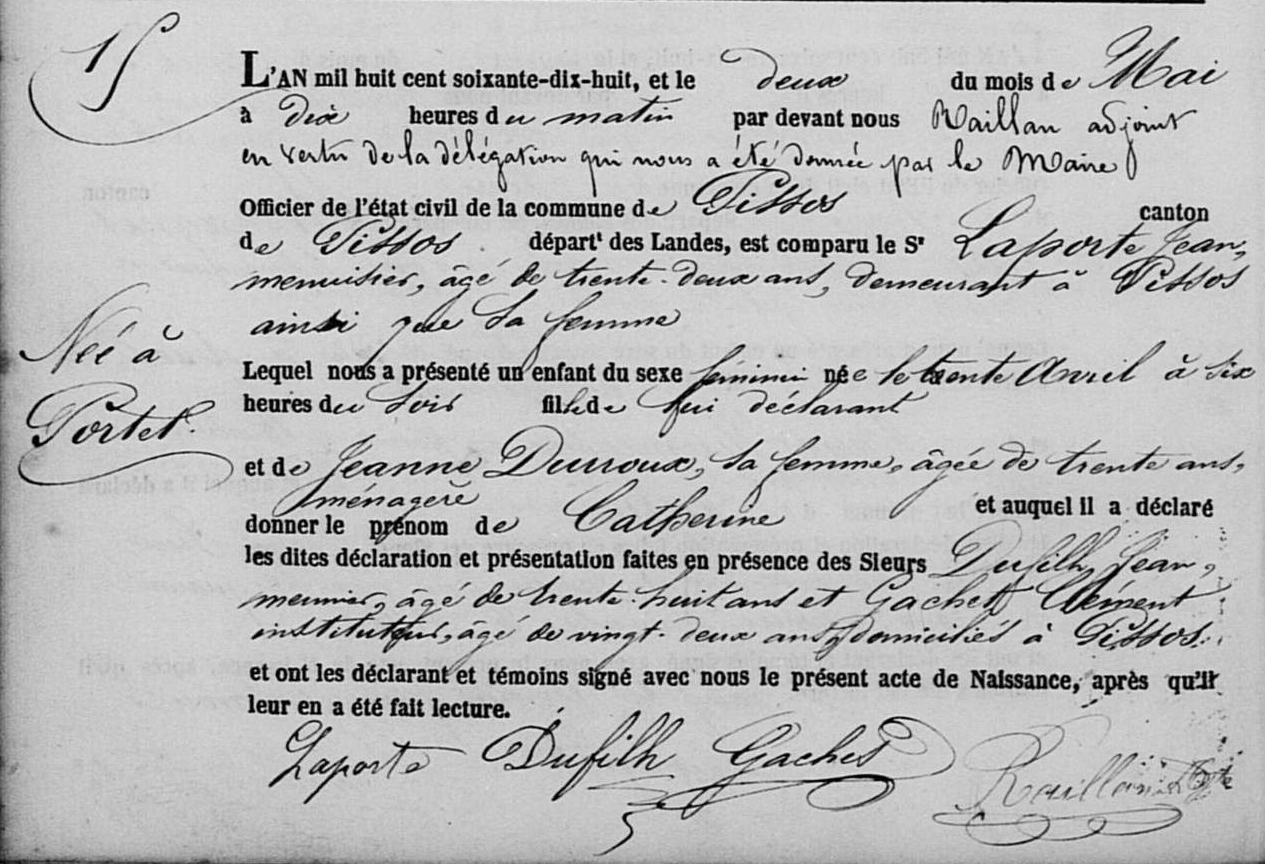 15
L'AN mil huit cent soixante-dix-huit, et le deux du mois de Mai
à dix heures du matin par devant nous Raillan adjoint
en vertu de la délégation qui nous a été donnée par le Maire
Officier de l'état civil de la commune de Pissos canton
de Pissos départt des Landes, est comparu le Sr Laporte Jean,
menuisier, âgé de trente-deux ans, demeurant à Pissos
ainsi que sa femme
Née à
Portet.
Lequel nous a présenté un enfant du sexe féminin née le trente Avril à six
heures du soir fille de lui déclarant
et de Jeanne Duroux, sa femme, âgée de trente ans,
ménagère
donner le prénom de Catherine et auquel il a déclaré
les dites déclaration et présentation faites en présence des Sieurs Dufilh Jean,
meunier, âgé de trente-huit ans et Gachet Clément
instituteur, âgé de vingt-deux ans, domiciliés à Pissos.
et ont les déclarant et témoins signé avec nous le présent acte de Naissance, après qu'il
leur en a été fait lecture.
Laporte Dufilh Gachet Raillan